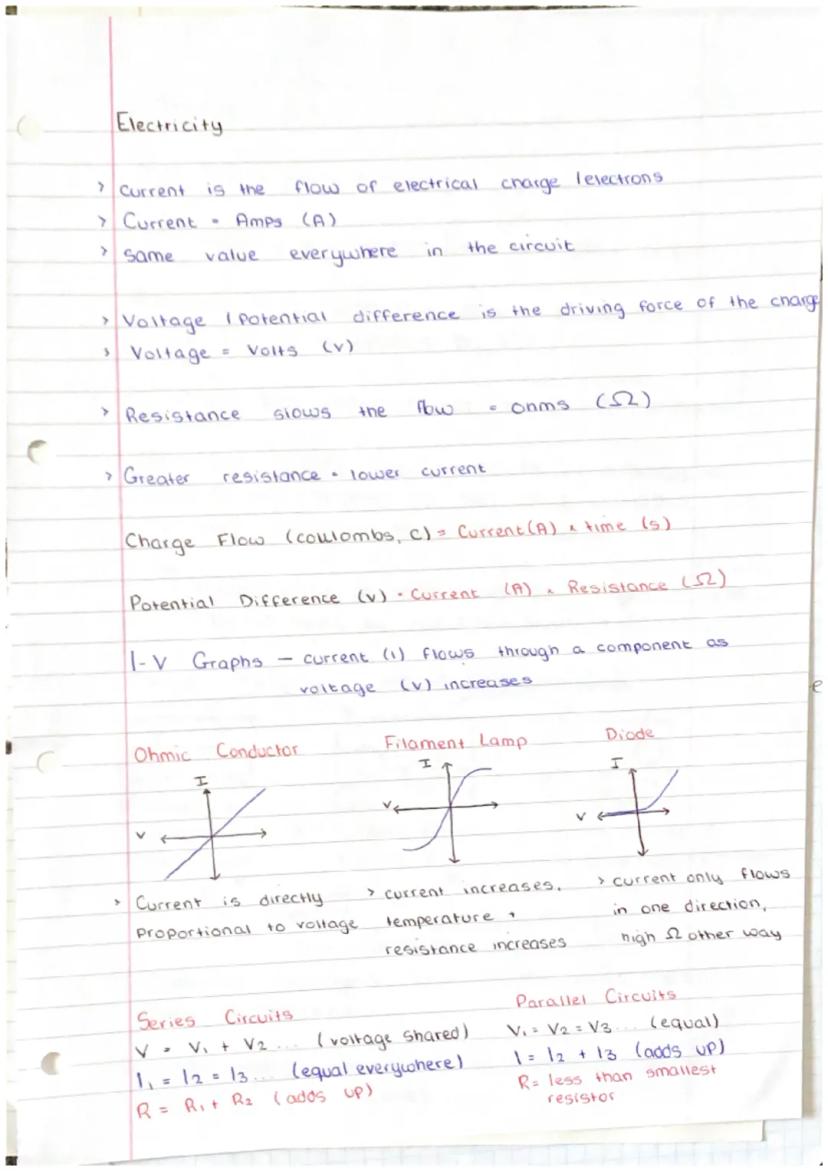 Electricity
> Current is the flow of electrical charge / electrons
> Current = Amps (A)
> Same value everywhere in the circuit
> Voltage / Potential difference is the driving force of the charge
> Voltage = Volts (V)
> Resistance slows the flow = ohms (Ω)
> Greater resistance = lower current
Charge Flow (coulombs, c) = Current (A) x time (s)
Potential Difference (v) = Current (A) x Resistance (Ω)
I-V Graphs — current (I) flows through a component as
voltage (v) increases
Ohmic Conductor Filament Lamp Diode
I I I
V V V
> Current is directly
proportional to voltage
> current increases,
temperature +
resistance increases
> current only flows
in one direction,
high Ω other way
Series Circuits
V = V1 + V2 ... (voltage shared)
I1 = I2 = I3 ... (equal everywhere)
R = R1 + R2 (adds up)
Parallel Circuits
V1 = V2 = V3 ... (equal)
I = I2 + I3 (adds up)
R = less than smallest
resistor
e